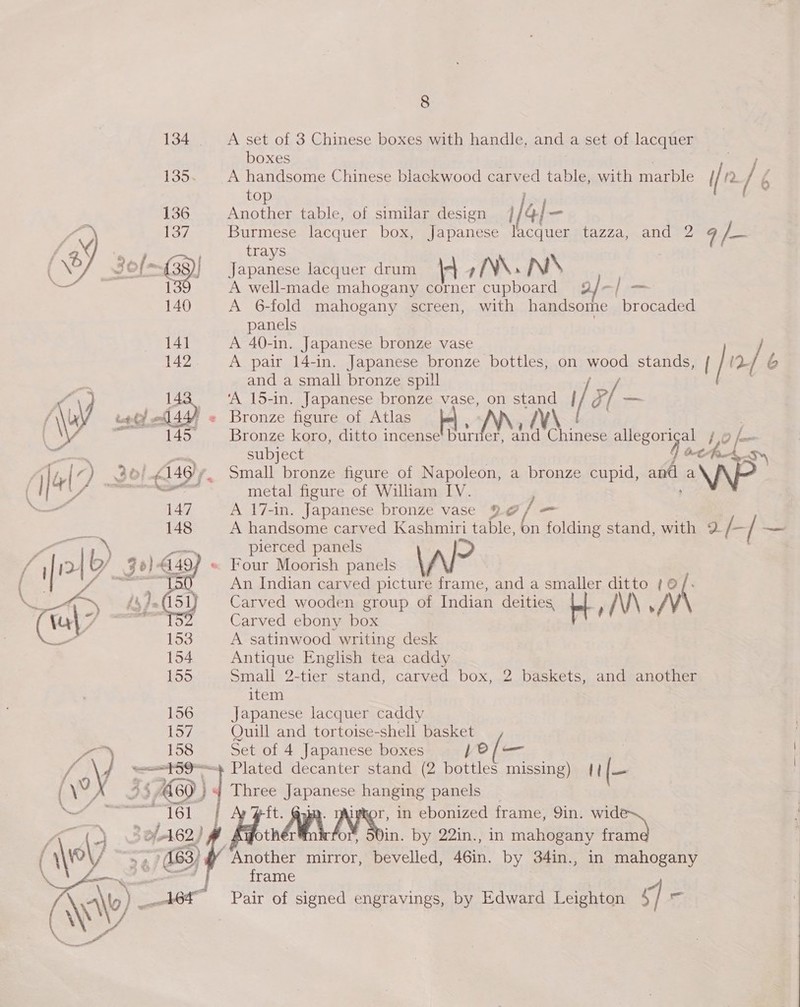 8
134 A set of 3 Chinese boxes with handle, and a set of lacquer
boxes
135. A handsome Chinese blackwood carved table, with marble
top
136 Another table, of similar design 1/4/-
137 Burmese lacquer box, Japanese lacquer tazza, and 2
trays
138 Japanese lacquer drum
139 A well-made mahogany corner cupboard 2/-/-
140 A 6-fold mahogany screen, with handsome brocaded
panels
141 A 40-in. Japanese bronze vase
142 A pair 14-in. Japanese bronze bottles, on wood stands,
and a small bronze spill
143 A 15-in. Japanese bronze vase, on stand
144 Bronze figure of Atlas
145 Bronze koro, ditto incense burner, and Chinese allegorical
subject
146 Small bronze figure of Napoleon, a bronze cupid, and a
metal figure of William IV.
147 A 17-in. Japanese bronze vase
148 A handsome carved Kashmiri table, on folding stand, with 2/-/-
pierced panels
149 Four Moorish panels
150 An Indian carved picture frame, and a smaller ditto 10/-
151 Carved wooden group of Indian deities
152 Carved ebony box
153 A satinwood writing desk
154 Antique English tea caddy
155 Small 2-tier stand, carved box, 2 baskets, and another
item
156 Japanese lacquer caddy
157 Quill and tortoise-shell basket
158 Set of 4 Japanese boxes 10/-
159 Plated decanter stand (2 bottles missing) 11/-
160 Three Japanese hanging panels
161 mirror, in ebonized frame, 9in. wide
162 Another mirror, 50in. by 22in., in mahogany frame
163 Another mirror, bevelled, 46in. by 34in., in mahogany
frame
164 Pair of signed engravings, by Edward Leighton